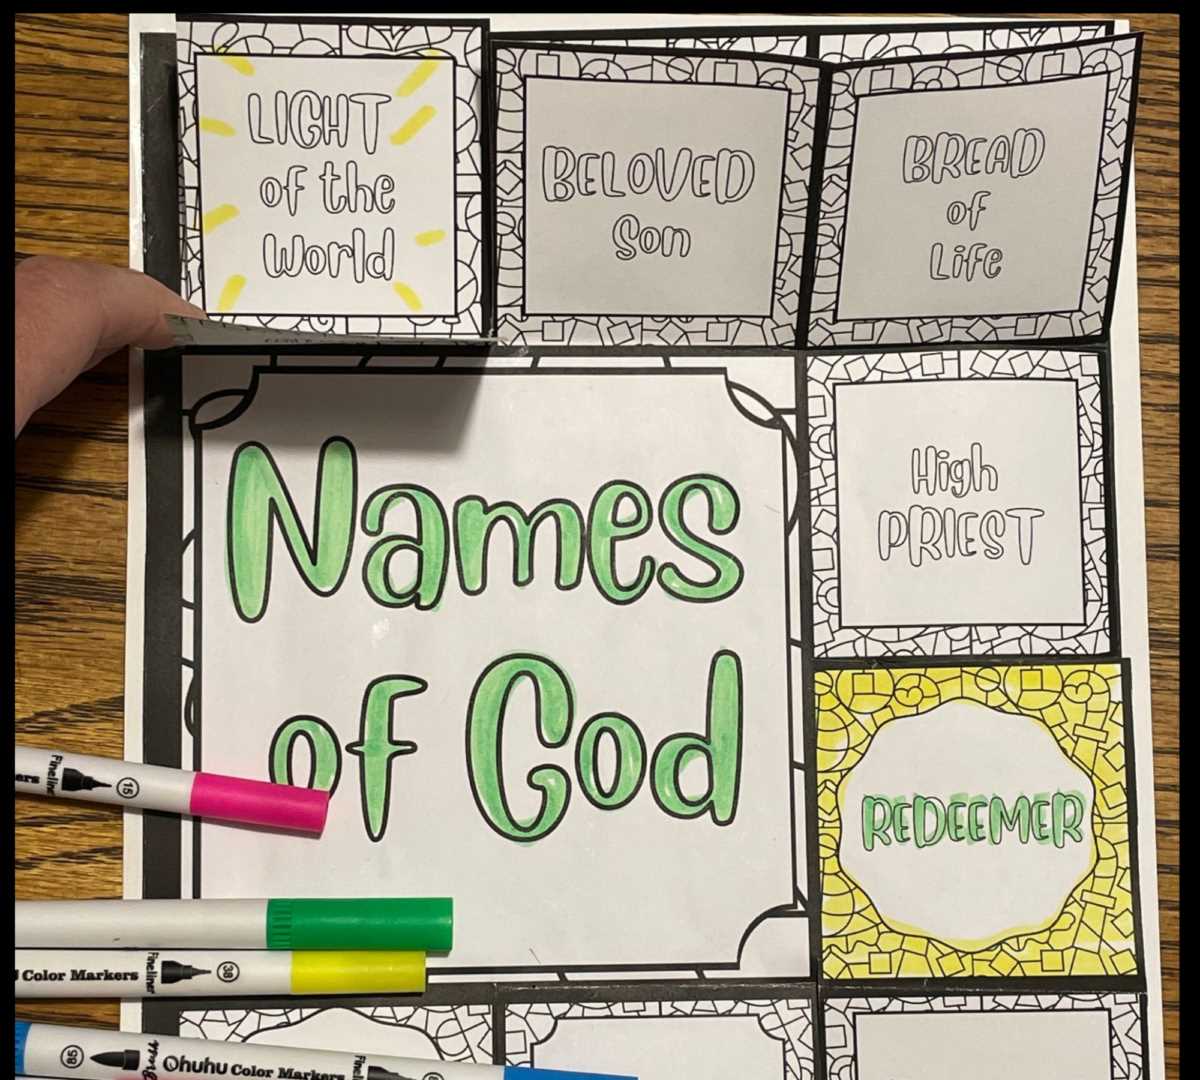 LIGHT
of the
World
BELOVED
Son
BREAD
of
Life
High
PRIEST
Names
of God
REDEEMER
ers Fineliner 15
Color Markers Fineliner 38
85 Ohuhu Color Markers